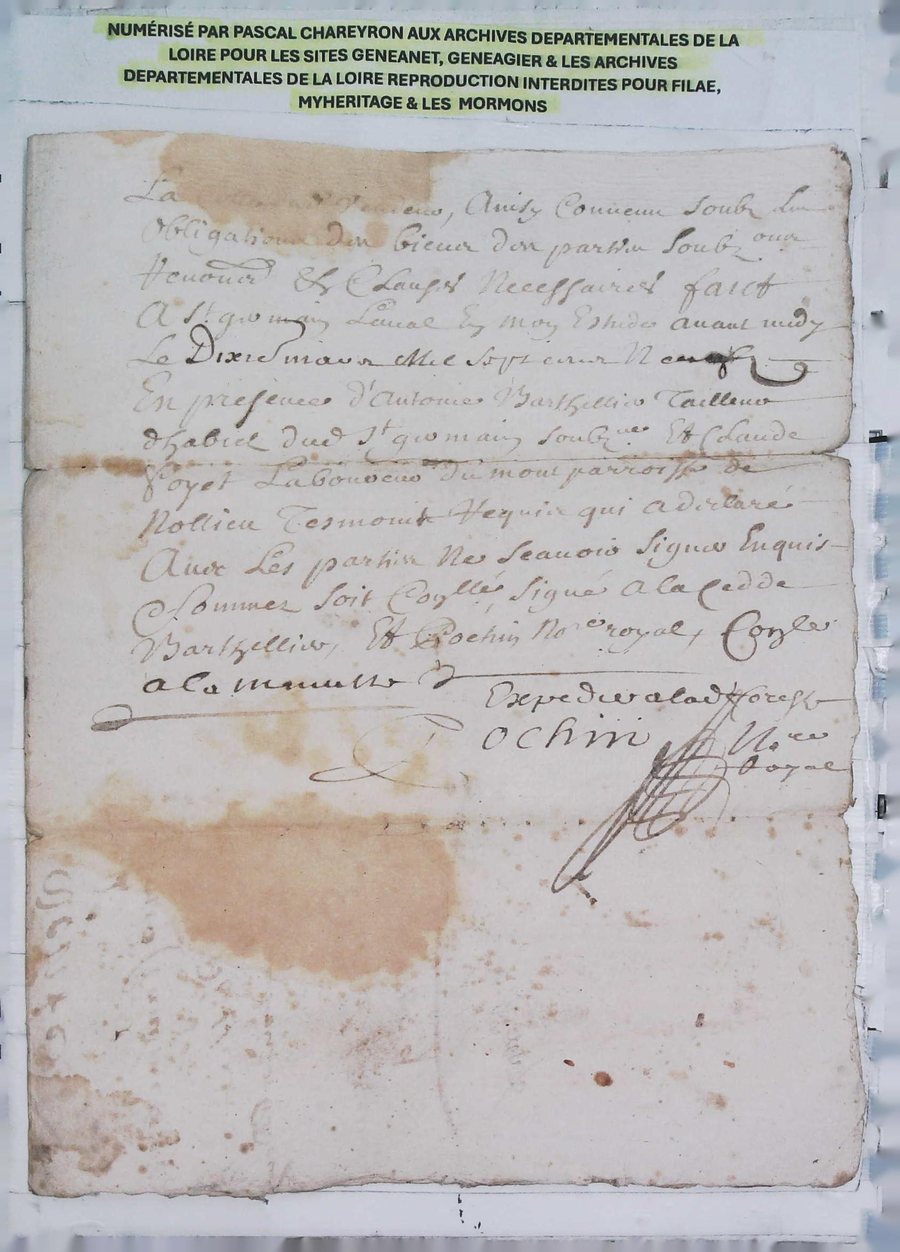 NUMÉRISÉ PAR PASCAL CHAREYRON AUX ARCHIVES DEPARTEMENTALES DE LA
LOIRE POUR LES SITES GENEANET, GENEAGIER & LES ARCHIVES
DEPARTEMENTALES DE LA LOIRE REPRODUCTION INTERDITES POUR FILAE,
MYHERITAGE & LES MORMONS
La Ainsy Convenu soubz Les
obligations des biens des parties soubz
Renoncia & Clauses Necessaires faict
A st germain Laval En mon Estude avant midy
Le Dixre mars Mil sept cens Neuf
En presence d'Antoine Barthellier Tailleur
d'habict dud st germain soubzne Et Claude
foyet Laboureur du mont parroisse de
Nollieu Tesmoint Requis qui a declaré
Avec Les parties Ne scavoir signer Enquis
Sommez soit Conllé, signé a la Cedde
Barthellier, Et Pochin Nore royal, Conlle
a la minutte
Expedie a lad
Pochin Nre
Royal